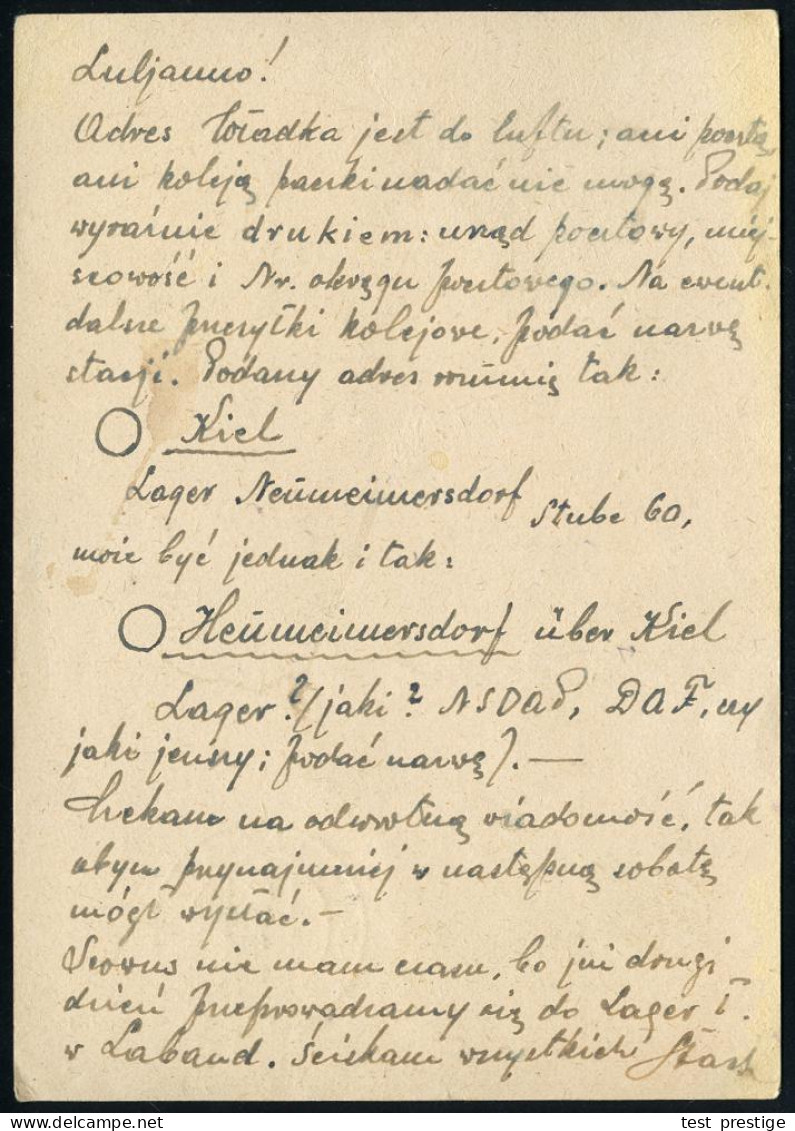 Luljanno!
Adres Władka jest do luftu; ani pocztą,
ani koleją paczki nadać nie mogę. Podaj
wyraźnie drukiem: urząd pocztowy, miej-
scowość i Nr. okręgu pocztowego. Na ewent.
dalsze przesyłki kolejowe, podać nazwę
stacji. Podany adres rozumię tak:
Kiel
Lager Neümeimersdorf Stube 60,
może być jednak i tak:
Heümeimersdorf über Kiel
Lager? (jaki? NSDAP, DAF, czy
jaki jenszy; podać nazwę). —
Czekam na odwrotną wiadomość, tak
abym przynajmniej w następną sobotę
mógł wysłać. —
nie mam czasu, bo już drugi
dzień przeprowadzamy się do Lager I.
w Laband. Ściskam wszystkich
test prestige